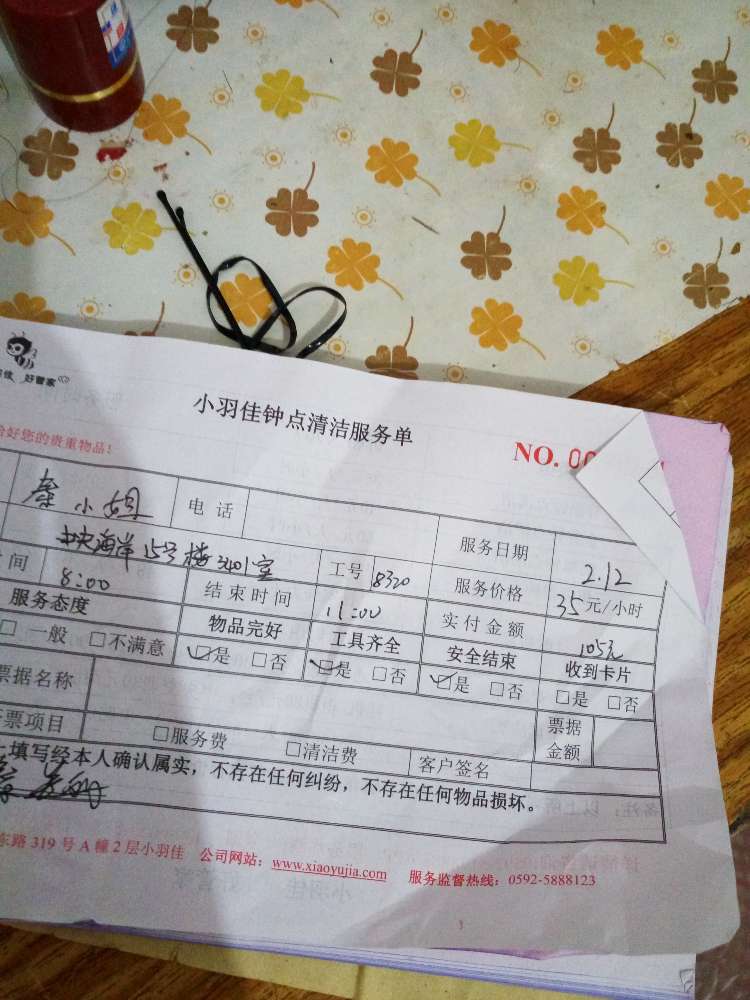 好管家
小羽佳钟点清洁服务单
NO. 00
好您的贵重物品！
秦小姐 电话 服务日期 2.12
中央海岸15号楼3401室 工号 8320 服务价格 35元/小时
间 8:00 结束时间 11:00 实付金额 105元
服务态度 物品完好 工具齐全 安全结束 收到卡片
□一般 □不满意 ☑是 □否 ☑是 □否 ☑是 □否 □是 □否
票据名称 票据金额
票项目 □服务费 □清洁费 客户签名
填写经本人确认属实，不存在任何纠纷，不存在任何物品损坏。
东路319号A幢2层小羽佳 公司网站：www.xiaoyujia.com 服务监督热线：0592-5888123